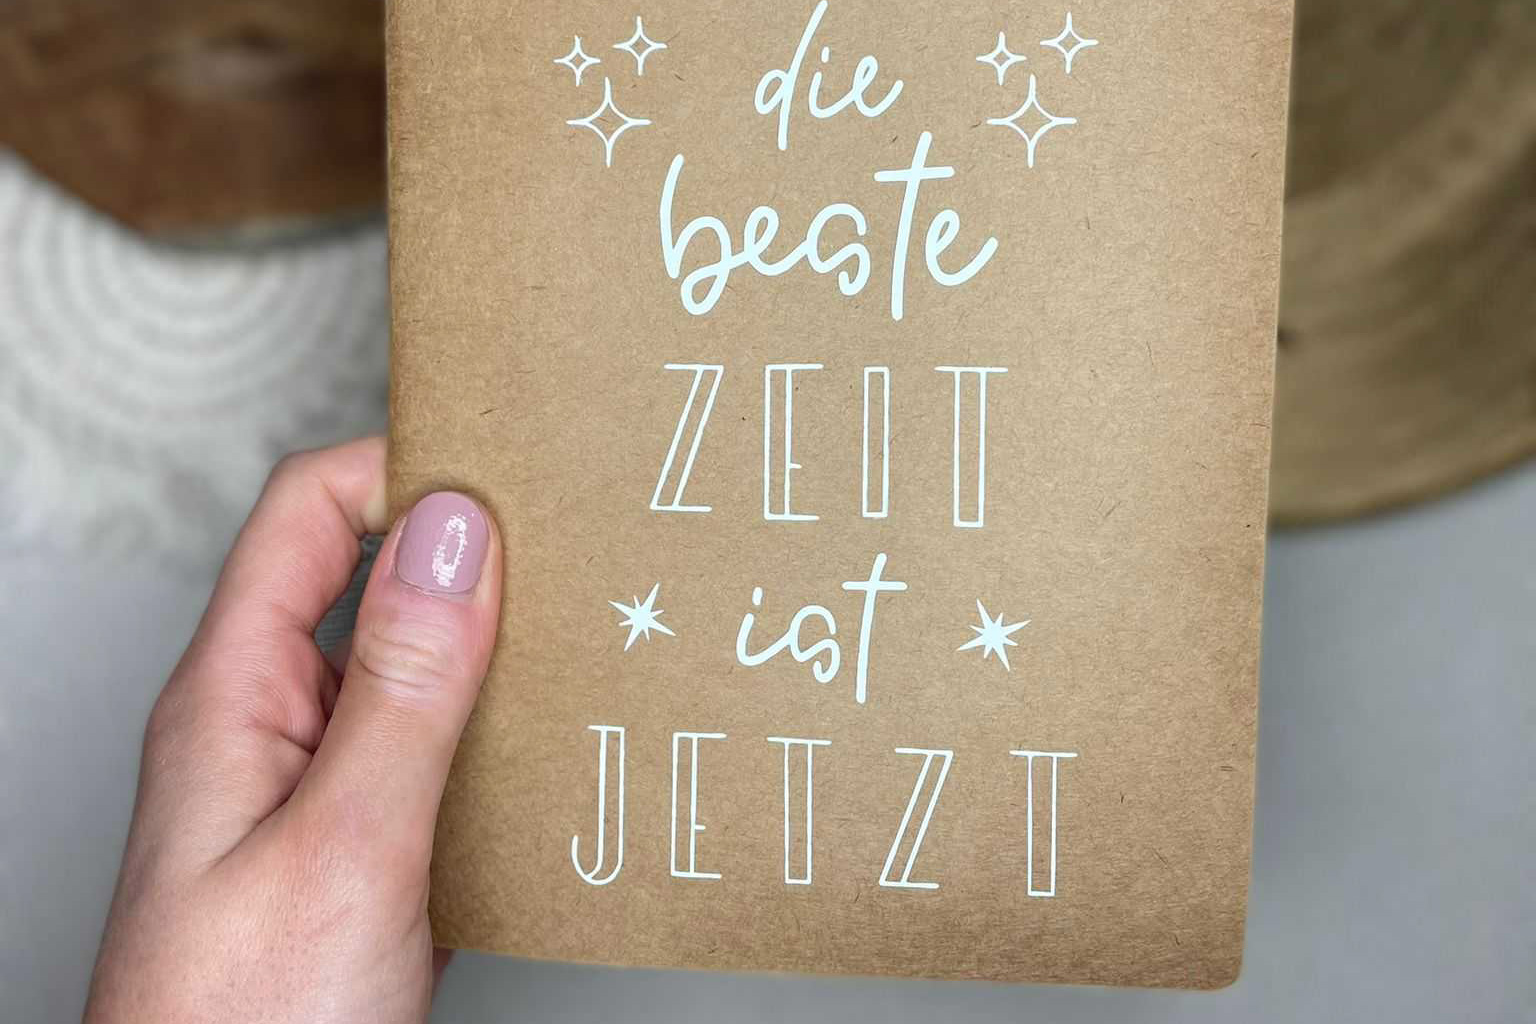 die
beste
ZEIT
ist
JETZT